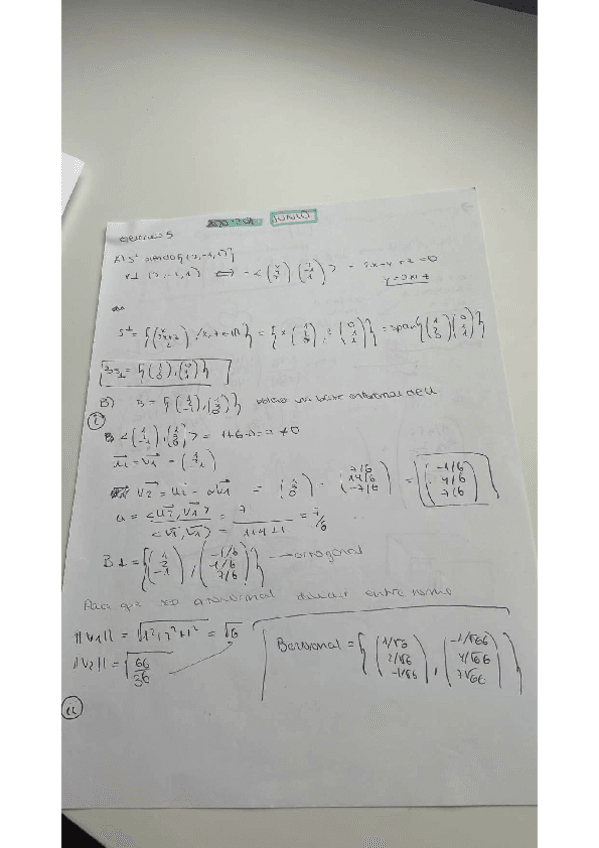 JUNIO
ejercicio 5
A) S⊥ siendo {(3,-1,1)}
v⊥ (3,-1,1) ⟺ <(x y z) (3 -1 1)> = 3x-y+z=0
y=3x+z
S⊥ = {(x 3x+z z) / x,z∈ℝ} = {x(1 3 0), z(0 1 1)} = span{(1 3 0)(0 1 1)}
B S⊥ = {(1 3 0), (0 1 1)}
B) B = {(1 2 -1), (1 3 0)} base ortonormal de U
i
<(1 2 -1), (1 3 0)> = 1+6-0=7≠0
u1 = v1 = (1 2 -1)
v2 = u2 - αv1 = (1 3 0) - (7/6 14/6 -7/6) = (-1/6 4/6 7/6)
α = <u2, v1> / <v1, v1> = 7 / 1+4+1 = 7/6
B⊥ = {(1 2 -1), (-1/6 4/6 7/6)} → ortogonal
Para que sea ortonormal dividir entre norma
||v1|| = √1²+2²+1² = √6
||v2|| = √66/36
Bortonormal = {(1/√6 2/√6 -1/√6), (-1/√66 4/√66 7/√66)}
ii